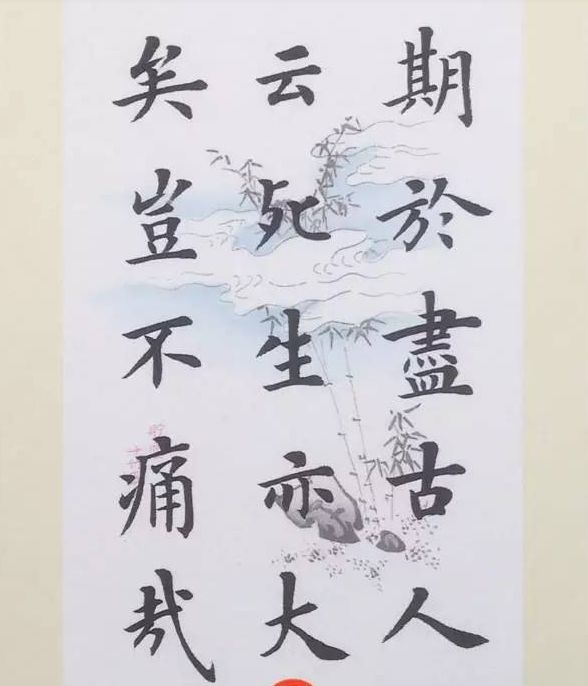 期於盡古人
云死生亦大
矣豈不痛哉